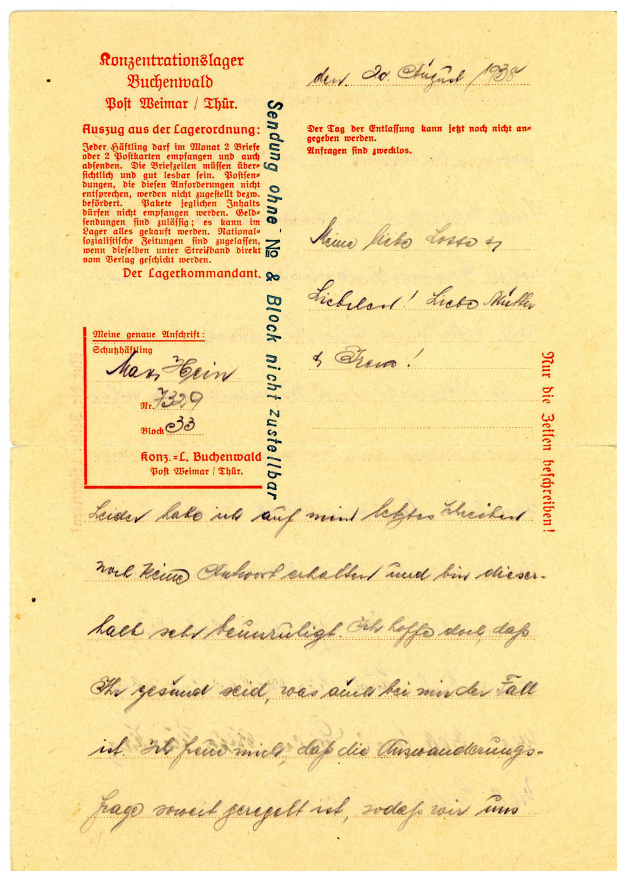 Konzentrationslager
Buchenwald
Post Weimar / Thür.
Auszug aus der Lagerordnung:
Jeder Häftling darf im Monat 2 Briefe
oder 2 Postkarten empfangen und auch
absenden. Die Briefzeilen müssen über-
sichtlich und gut lesbar sein. Postsen-
dungen, die diesen Anforderungen nicht
entsprechen, werden nicht zugestellt bezw.
befördert. Pakete jeglichen Inhalts
dürfen nicht empfangen werden. Geld-
sendungen sind zulässig; es kann im
Lager alles gekauft werden. National-
sozialistische Zeitungen sind zugelassen,
wenn dieselben unter Streifband direkt
vom Verlag geschickt werden.
Der Lagerkommandant.
Sendung ohne № & Block nicht zustellbar
den 20. August 1938
Der Tag der Entlassung kann jetzt noch nicht an-
gegeben werden.
Anfragen sind zwecklos.
Meine liebe &
Liebe Mutter
&
Meine genaue Anschrift:
Schutzhäftling
Max Hein
Nr. 7329
Block 33
Konz.=L. Buchenwald
Post Weimar / Thür.
Nur die Zeilen beschreiben!
Leider habe ich auf mein letztes Schreiben
noch keine Antwort erhalten und bin dieser-
halb sehr beunruhigt. Ich hoffe doch, daß
Ihr gesund seid, was auch bei mir der Fall
ist. Ich freue mich, daß die Auswanderungs-
frage soweit geregelt ist, sodaß wir uns